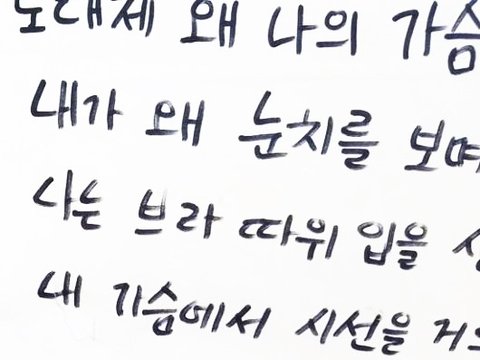 도대체 왜 나의 가슴
내가 왜 눈치를 보며
나는 브라 따위 입을
내 가슴에서 시선을